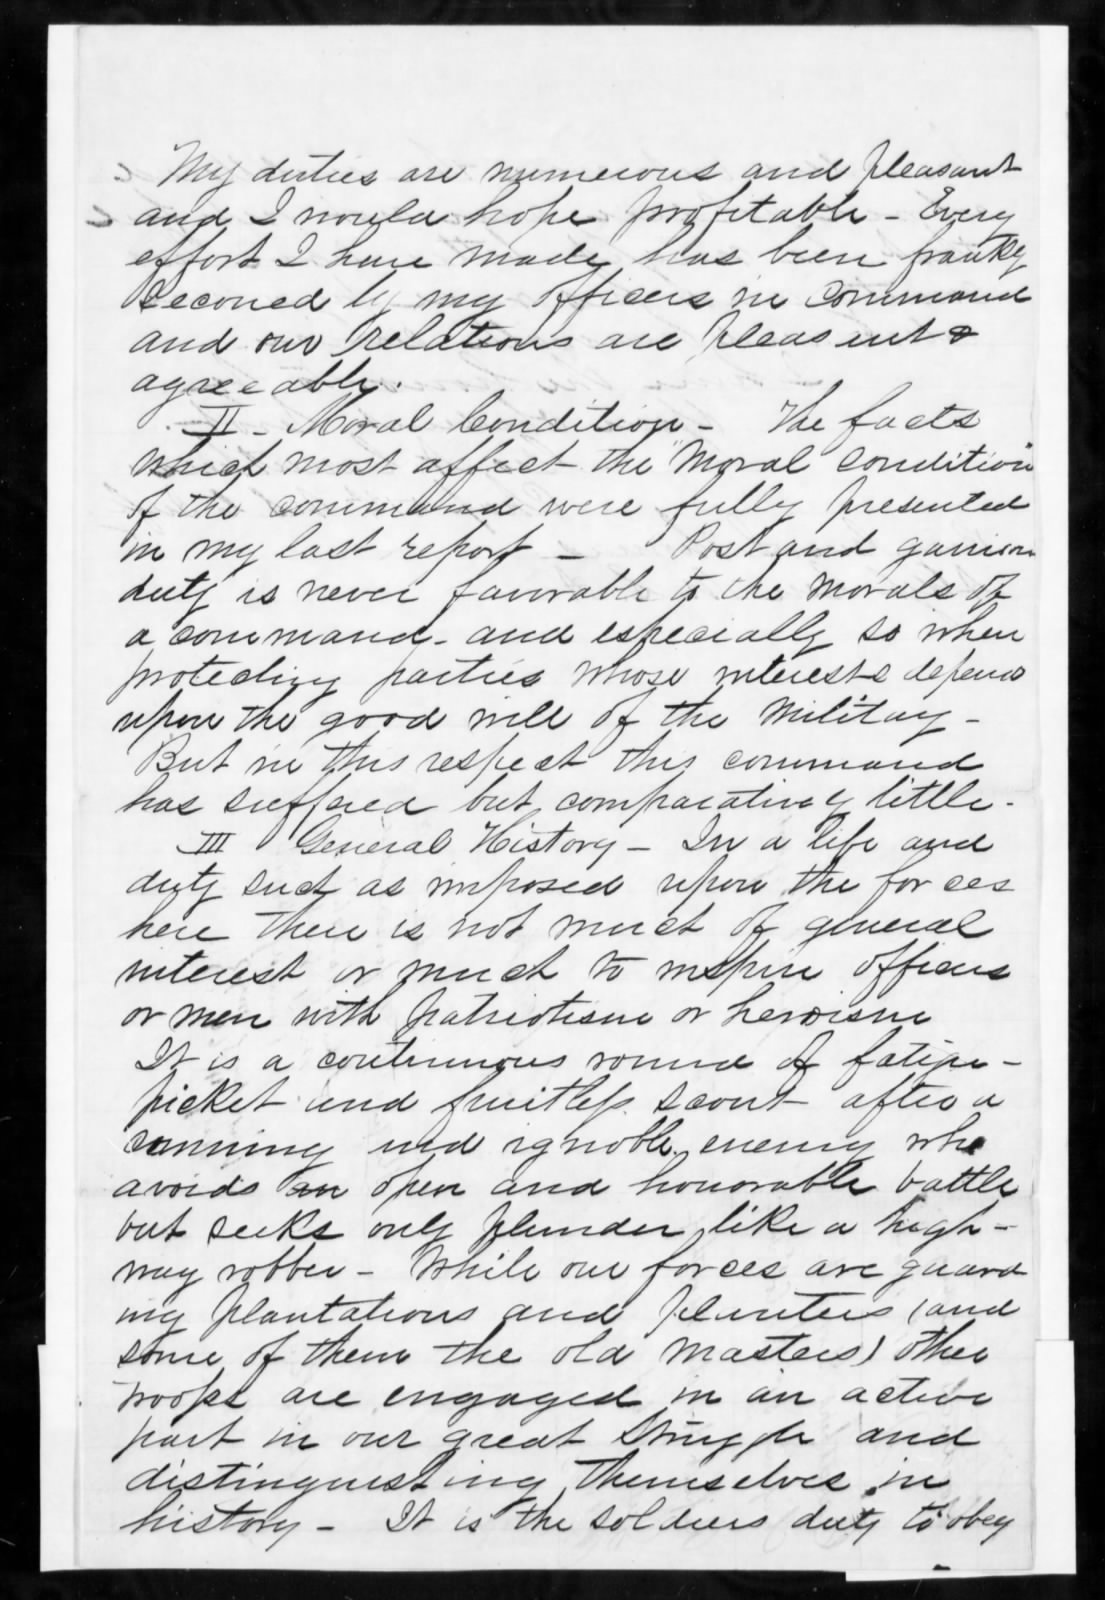 My duties are numerous and pleasant
and I would hope profitable - Every
effort I have made has been frankly
seconed by my officers in command
and our relations are pleasent &
agreeable.
II - Moral Condition - The facts
which most affect the "Moral Condition"
of the command were fully presented
in my last report - Post and garrison
duty is never favorable to the morals of
a command - and especially so when
protecting parties whose interests depend
upon the good will of the Military -
But in this respect this command
has suffered but comparatively little -
III General History - In a life and
duty such as imposed upon the forces
here there is not much of general
interest or much to inspire officers
or men with patriotism or heroism
It is a continuous round of fatigue -
picket and fruitless scout after a
cunning and ignoble enemy who
avoids an open and honorable battle
but seeks only plunder like a high-
way robber - While our forces are guard
ing plantations and planters (and
some of them the old masters) other
troops are engaged in an active
part in our great struggle and
distinguishing themselves in
history - It is the soldiers duty to obey